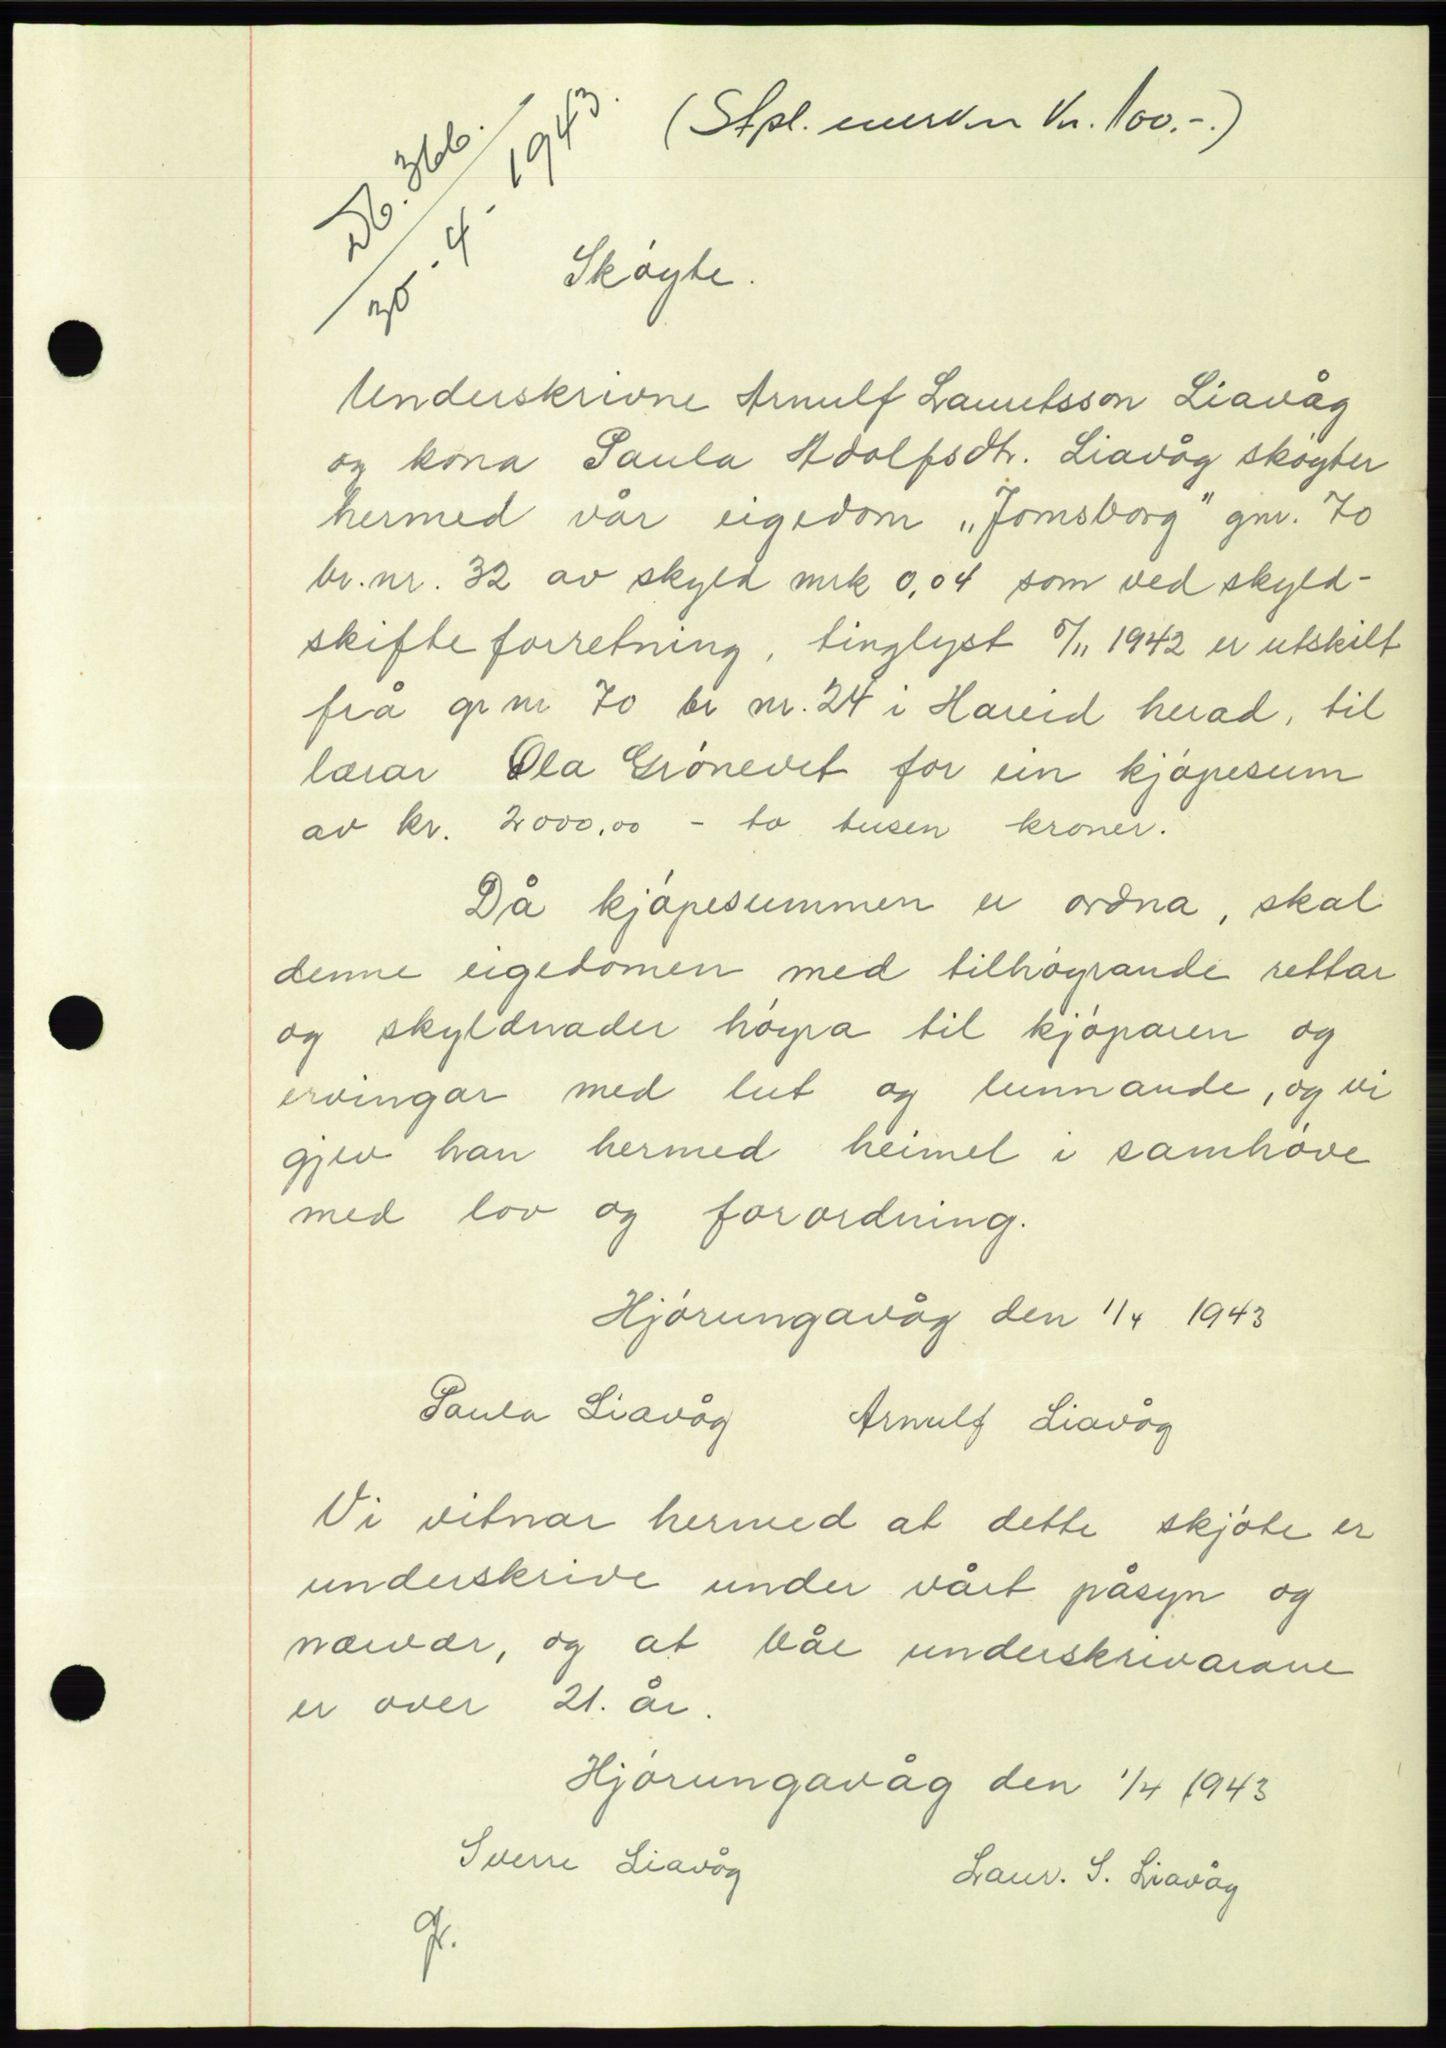 (Stpl. merker kr. 100.-.)
Db. 366.
30 - 4 - 1943.
Skóyte.
Underskrivne Arnulf Lauritsson Liavåg
og kona Paula Adolfsdtr. Liavåg skóyter
hermed vår eigedom „Jomsborg" gnr. 70
br.nr. 32 av skyld mrk 0,04 som ved skyld-
skifteforretning, tinglyst 5/11 1942 er utskilt
frå gr nr 70 br nr. 24 i Hareid herad, til
lærar Ola Grónevet for ein kjópesum
av kr. 2000,00 - to tusen kroner.
Då kjópesummen er ordna, skal
denne eigedomen med tilhóyrande rettar
og skyldnader hóyra til kjóparen og
ervingar med lut og lunnande, og vi
gjev han hermed heimel i samhóve
med lov og forordning.
Hjórungavåg den 1/4 1943
Paula Liavåg Arnulf Liavåg
Vi vitnar hermed at dette skjóte er
underskrive under vårt påsyn og
nærvær, og at båe underskrivarane
er over 21. år.
Hjórungavåg den 1/4 1943
Sverre Liavåg Laur. S. Liavåg